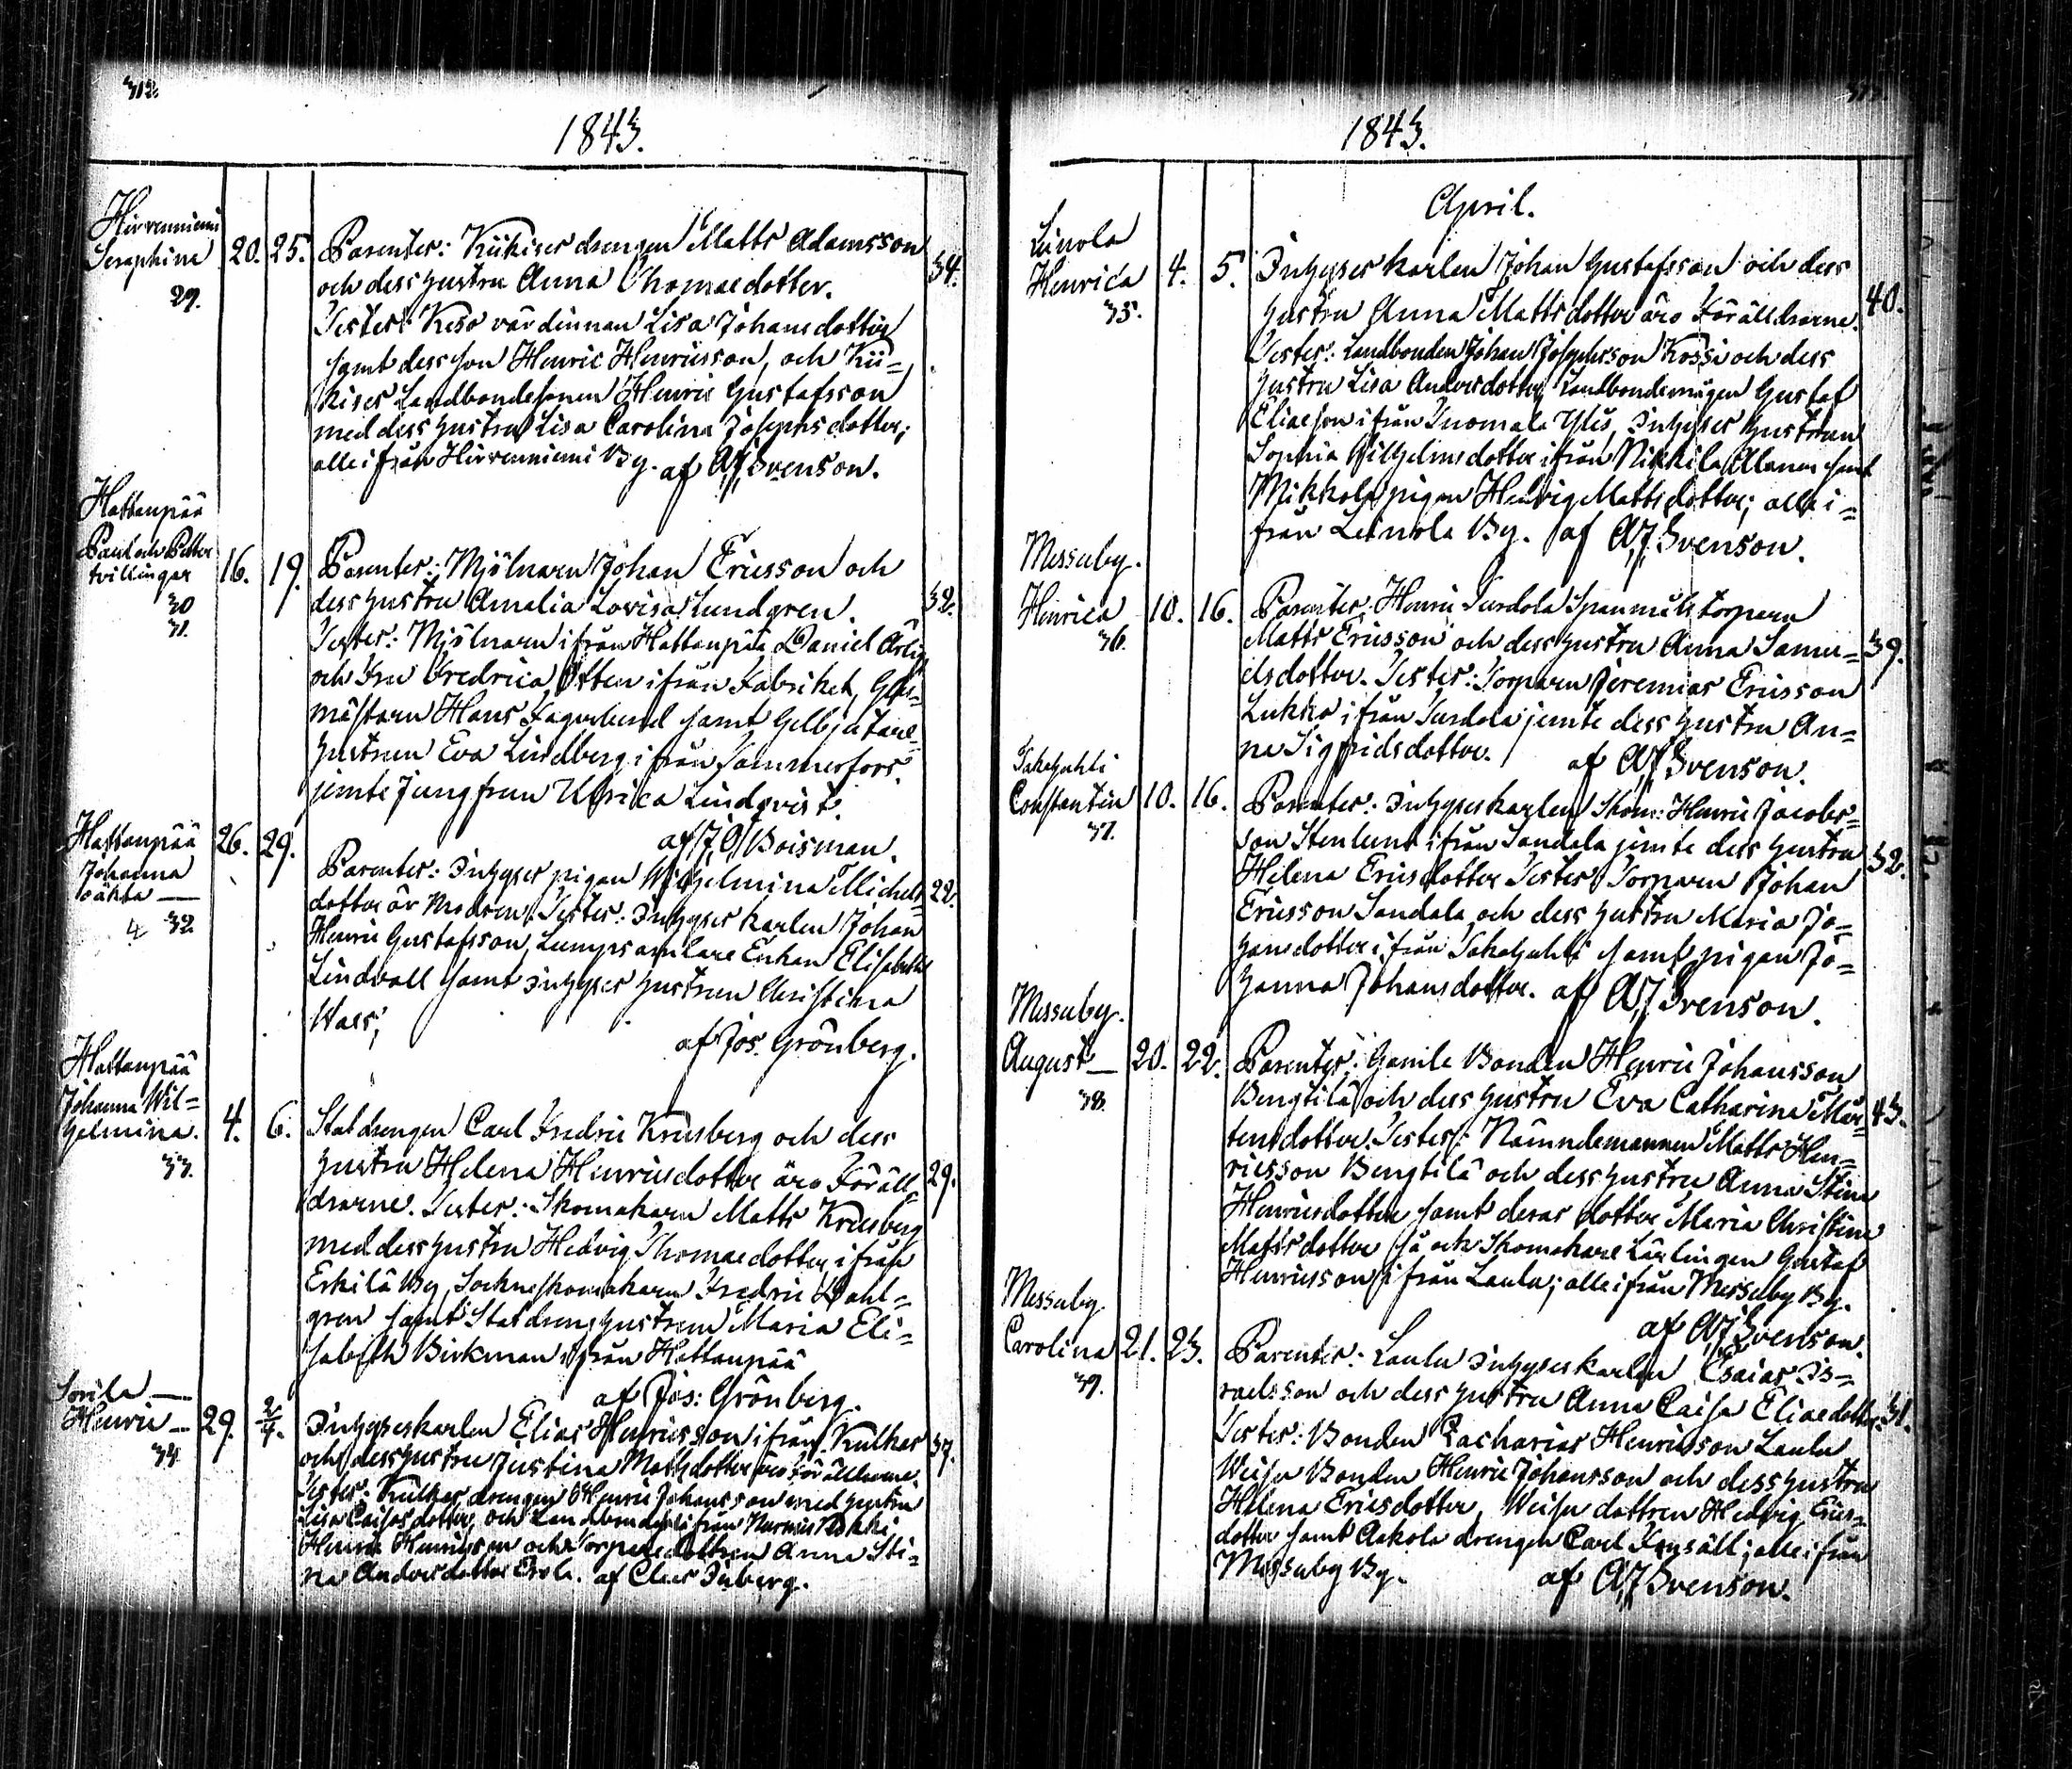 312.
1843.
Hirvenniemi
Seraphina 20. 25. Parenter: Kiikiser drengen Matts Adamsson 34.
29. och dess hustru Anna Thomaedotter.
Tester: Keso värdinnan Lisa Johansdotter
samt dess son Henric Henricsson, och Kii=
kiser Landbondesonen Henric Gustafsson
med dess hustru Lisa Carolina Josephsdotter;
alle ifrån Hirvenniemi By. af AJ Svenson.
Hattanpää
Paul och Petter
tvillingar 16. 19. Parenter: Mjölnarn Johan Ericsson och
30 dess hustru Amalia Lovisa Lundgren. 32.
31. Tester: Mjölnarn ifrån Hattanpää Daniel
och Fru Fredrica Otten ifrån Fabriket, Glas=
mästarn Hans Fagerlund samt Gelbjutare=
hustrun Eva Lindberg ifrån Tammerfors.
jemte Jungfrun Ulrica Lindqvist.
af J.O. Boisman.
Hattanpää 26. 29.
Johanna Parenter: Inhyses pigan Wilhelmina Michels= 22.
oäkta — dotter är Modren. Tester: Inhyses karlen Johan
4 32 Henric Gustafsson, Lumpsamlare Enkan Elisabeth
Lindvall samt Inhyses hustrun Christina
Wass;
af Jos. Grönberg.
Hattanpää
Johanna Wil=
helmina. 4. 6. Staldrengen Carl Fredric Krusberg och dess
33. hustru Helena Henricsdotter äro Föräll= 29.
drarne. Tester: Skomakarn Matts Krusberg
med dess hustru Hedvig Thomaedotter ifrån
Erkilä By, Socknskomakarn Fredric Dahl=
gren samt Staldrengshustrun Maria Eli=
sabeth Birkman ifrån Hattanpää
af Jos: Grönberg.
Sorila —
Henric — 29. 2/4. Inhyseskarlen Elias Henricsson ifrån Kulkas 37.
34. och dess hustru Justina Mattsdotter äro Förälldrarne.
Tester: Kulkas drengen Henric Johansson med hustru
Lisa Caisas dotter, och Landbonden ifrån Nurmis
Henric Henricsson och Torparedottren Anna Sti=
na Andersdotter Erola. af Claes Inberg.
313.
1843.
April.
Leinola
Henrica 4. 5. Inhyses karlen Johan Gustafsson och dess
35. hustru Anna Mattsdotter äro Förälldrarne. 40.
Tester: Landbonden Johan Josephsson Kossi och dess
hustru Lisa Andersdotter, Landbondemågen Gustaf
Eliaeson ifrån Tuomala Ylis, Inhyses hustrun
Sophia Wilhelmsdotter ifrån Nikkilä Alanen samt
Mikkola pigan Hedvig Mattsdotter; alle i=
från Leinola By. af AJ Svenson.
Messuby.
Henrica 10. 16. Parenter: Henric Turdola Spanmåls torparn
36. Matts Ericsson och dess hustru Anna Samu= 39.
elsdotter. Tester: Torparn Jeremias Ericsson
Lukko ifrån Turdola jemte dess hustru An=
na Sigfridsdotter. af AJ Svenson.
Takahuhti
Constantin 10. 16. Parenter: Inhyseskarlen Skom: Henric Jacobs=
37. son Stenlund ifrån Sandala jemte dess hustru 32.
Helena Ericsdotter Tester: Torparn Johan
Ericsson Sandala och dess hustru Maria Jo=
hansdotter ifrån Takahuhti samt pigan Jo=
hanna Johansdotter. af AJ Svenson.
Messuby.
August — 20. 22. Parenter: Gamle Bonden Henric Johansson
38. Bengtilä och dess hustru Eva Catharina Mår= 43.
tensdotter. Tester: Nämndemannen Matts Hen=
ricsson Bengtilä och dess hustru Anna Stina
Henricsdotter samt deras dotter Maria Christina
Mattsdotter så och Skomakare Lärlingen Gustaf
Henricsson ifrån Laulu; alle ifrån Messuby By.
af AJ Svenson.
Messuby.
Carolina 21. 23. Parenter: Laulu Inhyseskarlen Esaias Is=
39. raelsson och dess hustru Anna Caisa Eliaedotter. 31.
Tester: Bonden Zacharias Henricsson Laulu
Weisu Bonden Henric Johansson och dess hustru
Helena Ericsdotter, Weisu dottren Hedvig Erics=
dotter samt Aakola drengen Carl Forsäll; alle ifrån
Messuby By. af AJ Svenson.